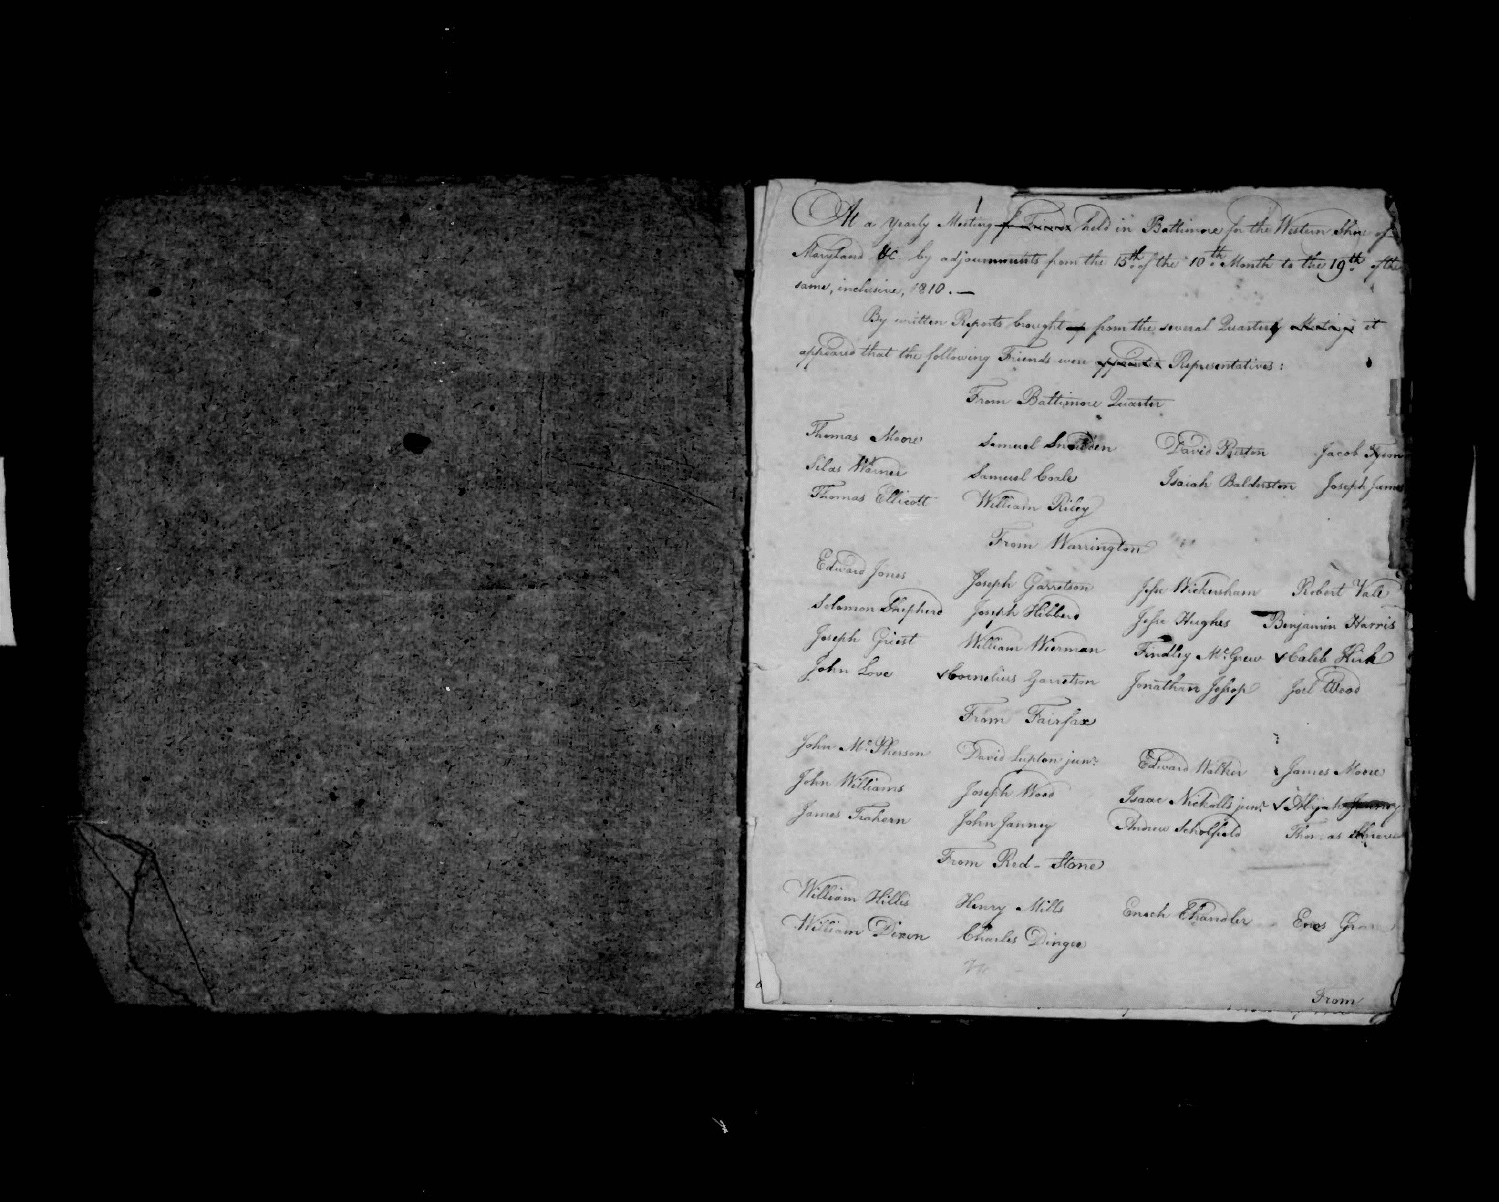 At a Yearly Meeting of Friends held in Baltimore for the Western Shore of
Maryland &c by adjournments from the 15th of the 10th Month to the 19th of the
same, inclusive, 1810. —
By written Reports brought up from the several Quarterly Meetings it
appeared that the following Friends were appointed Representatives:
From Baltimore Quarter
Thomas Moore Samuel Snowden David Riston Jacob
Silas Warner Samuel Coale Isaiah Balderston Joseph James
Thomas Ellicott William Riley
From Warrington
Edward Jones Joseph Garretson Jesse Wickersham Robert Vale
Solomon Shepherd Joseph Hibberd Jesse Hughes Benjamin Harris
Joseph Griest William Wierman Findley McGrew Caleb Kirk
John Love Cornelius Garretson Jonathan Jessop Joel Wood
From Fairfax
John McPherson David Lupton junr. Edward Walker James Moore
John Williams Joseph Wood Isaac Nickolls junr. Abijah Janney
James Trahern John Janney Andrew Scholfield Thomas
From Red-Stone
William Hilles Henry Mills Enoch Chandler Enos
William Dixon Charles Dingee
From